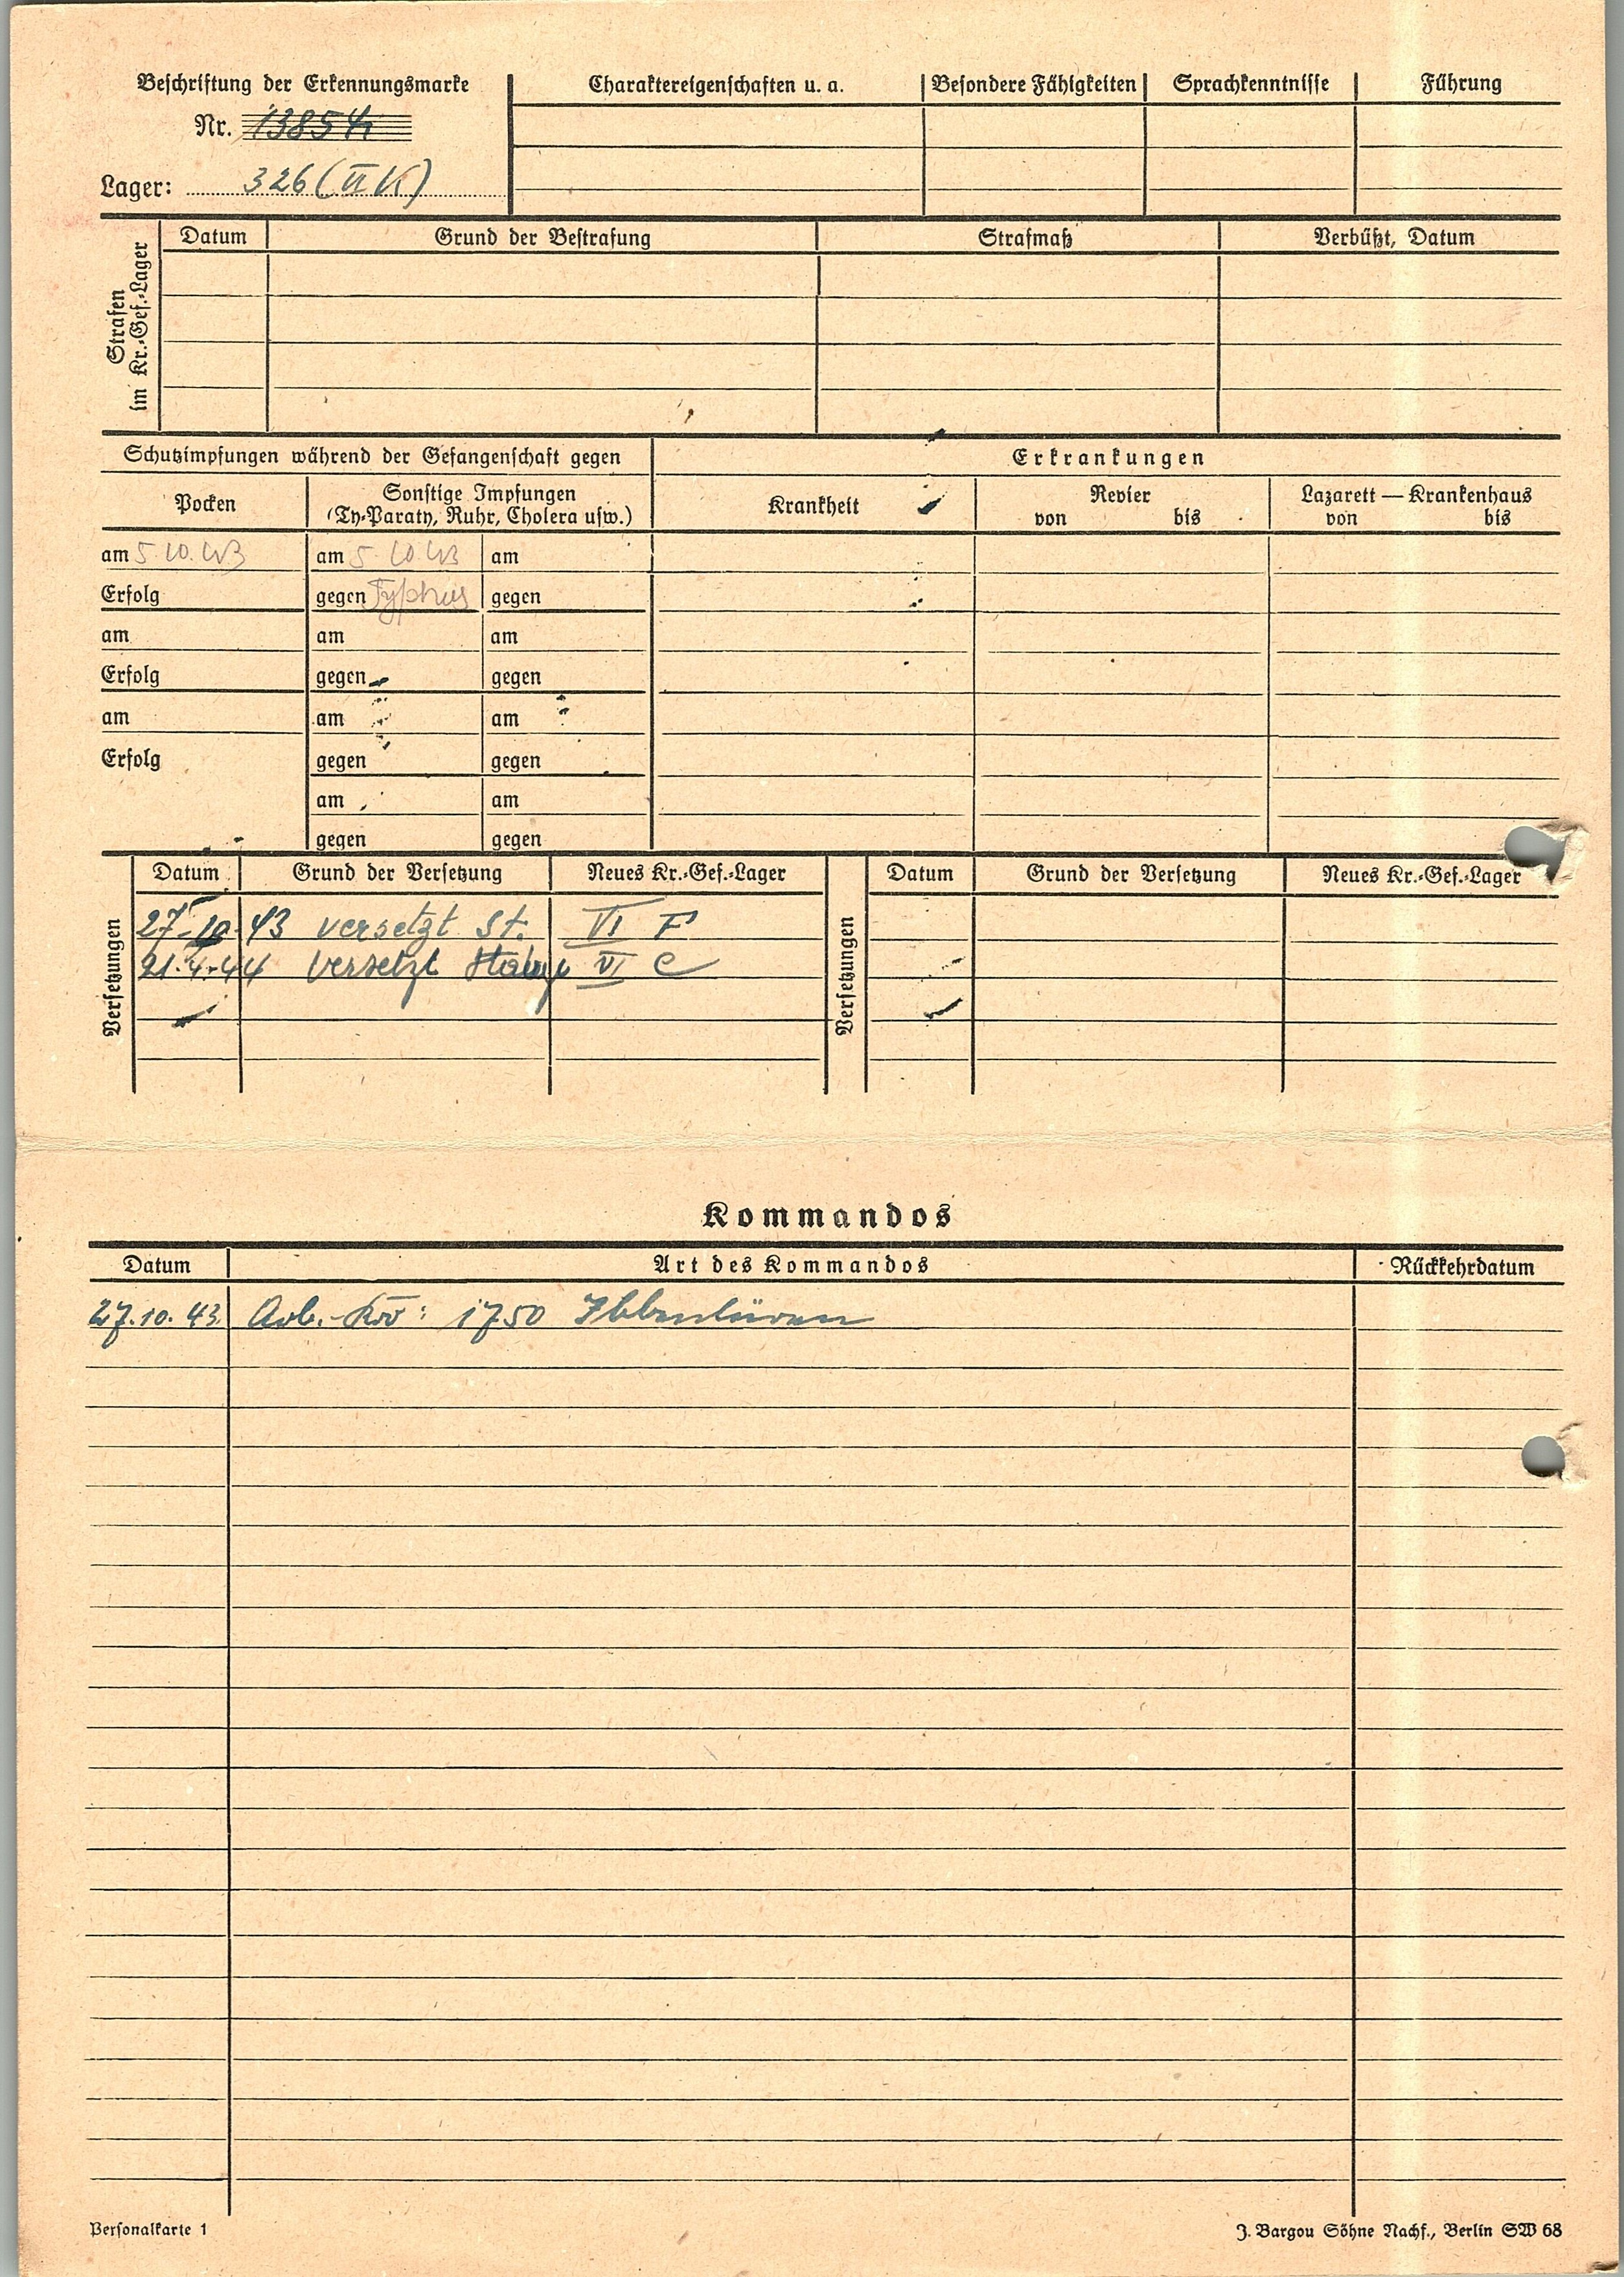 Beschriftung der Erkennungsmarke
Nr. 13854
Lager: 326 (VI K)
Charaktereigenschaften u. a. Besondere Fähigkeiten Sprachkenntnisse Führung
Strafen im Kr.-Gef.-Lager
Datum Grund der Bestrafung Strafmaß Verbüßt, Datum
Schutzimpfungen während der Gefangenschaft gegen Erkrankungen
Pocken Sonstige Impfungen (Ty-Paraty, Ruhr, Cholera usw.) Krankheit Revier von bis Lazarett — Krankenhaus von bis
am 5.10.43 am 5.10.43 am
Erfolg gegen Typhus gegen
am am am
Erfolg gegen gegen
am am am
Erfolg gegen gegen
am am
gegen gegen
Versetzungen
Datum Grund der Versetzung Neues Kr.-Gef.-Lager
27.10.43 versetzt St. VI F
21.4.44 versetzt Stalag VI C
Versetzungen
Datum Grund der Versetzung Neues Kr.-Gef.-Lager
Kommandos
Datum Art des Kommandos Rückkehrdatum
27.10.43 Arb.-Kdo: 1750 Ibbenbüren
Personalkarte 1
J. Bargou Söhne Nachf., Berlin SW 68